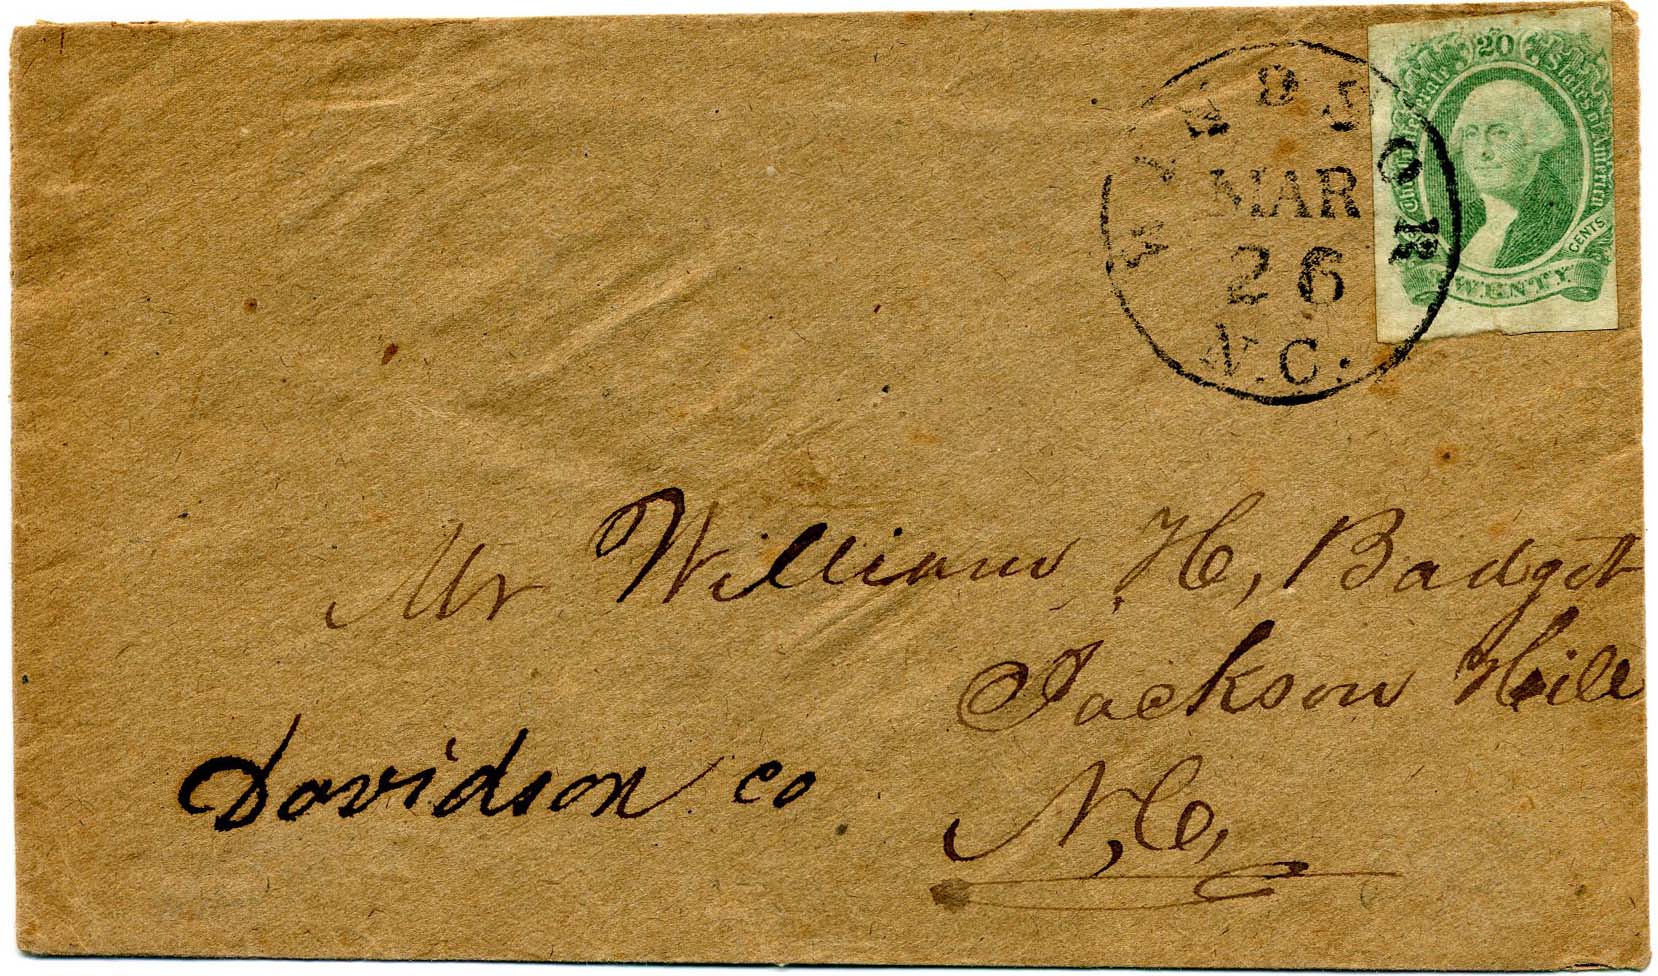 WINDSOR
MAR
26
N.C.
20
Confederate States of America
TWENTY CENTS
Mr William H, Badget
Jackson Hill
Davidson co
N, C,